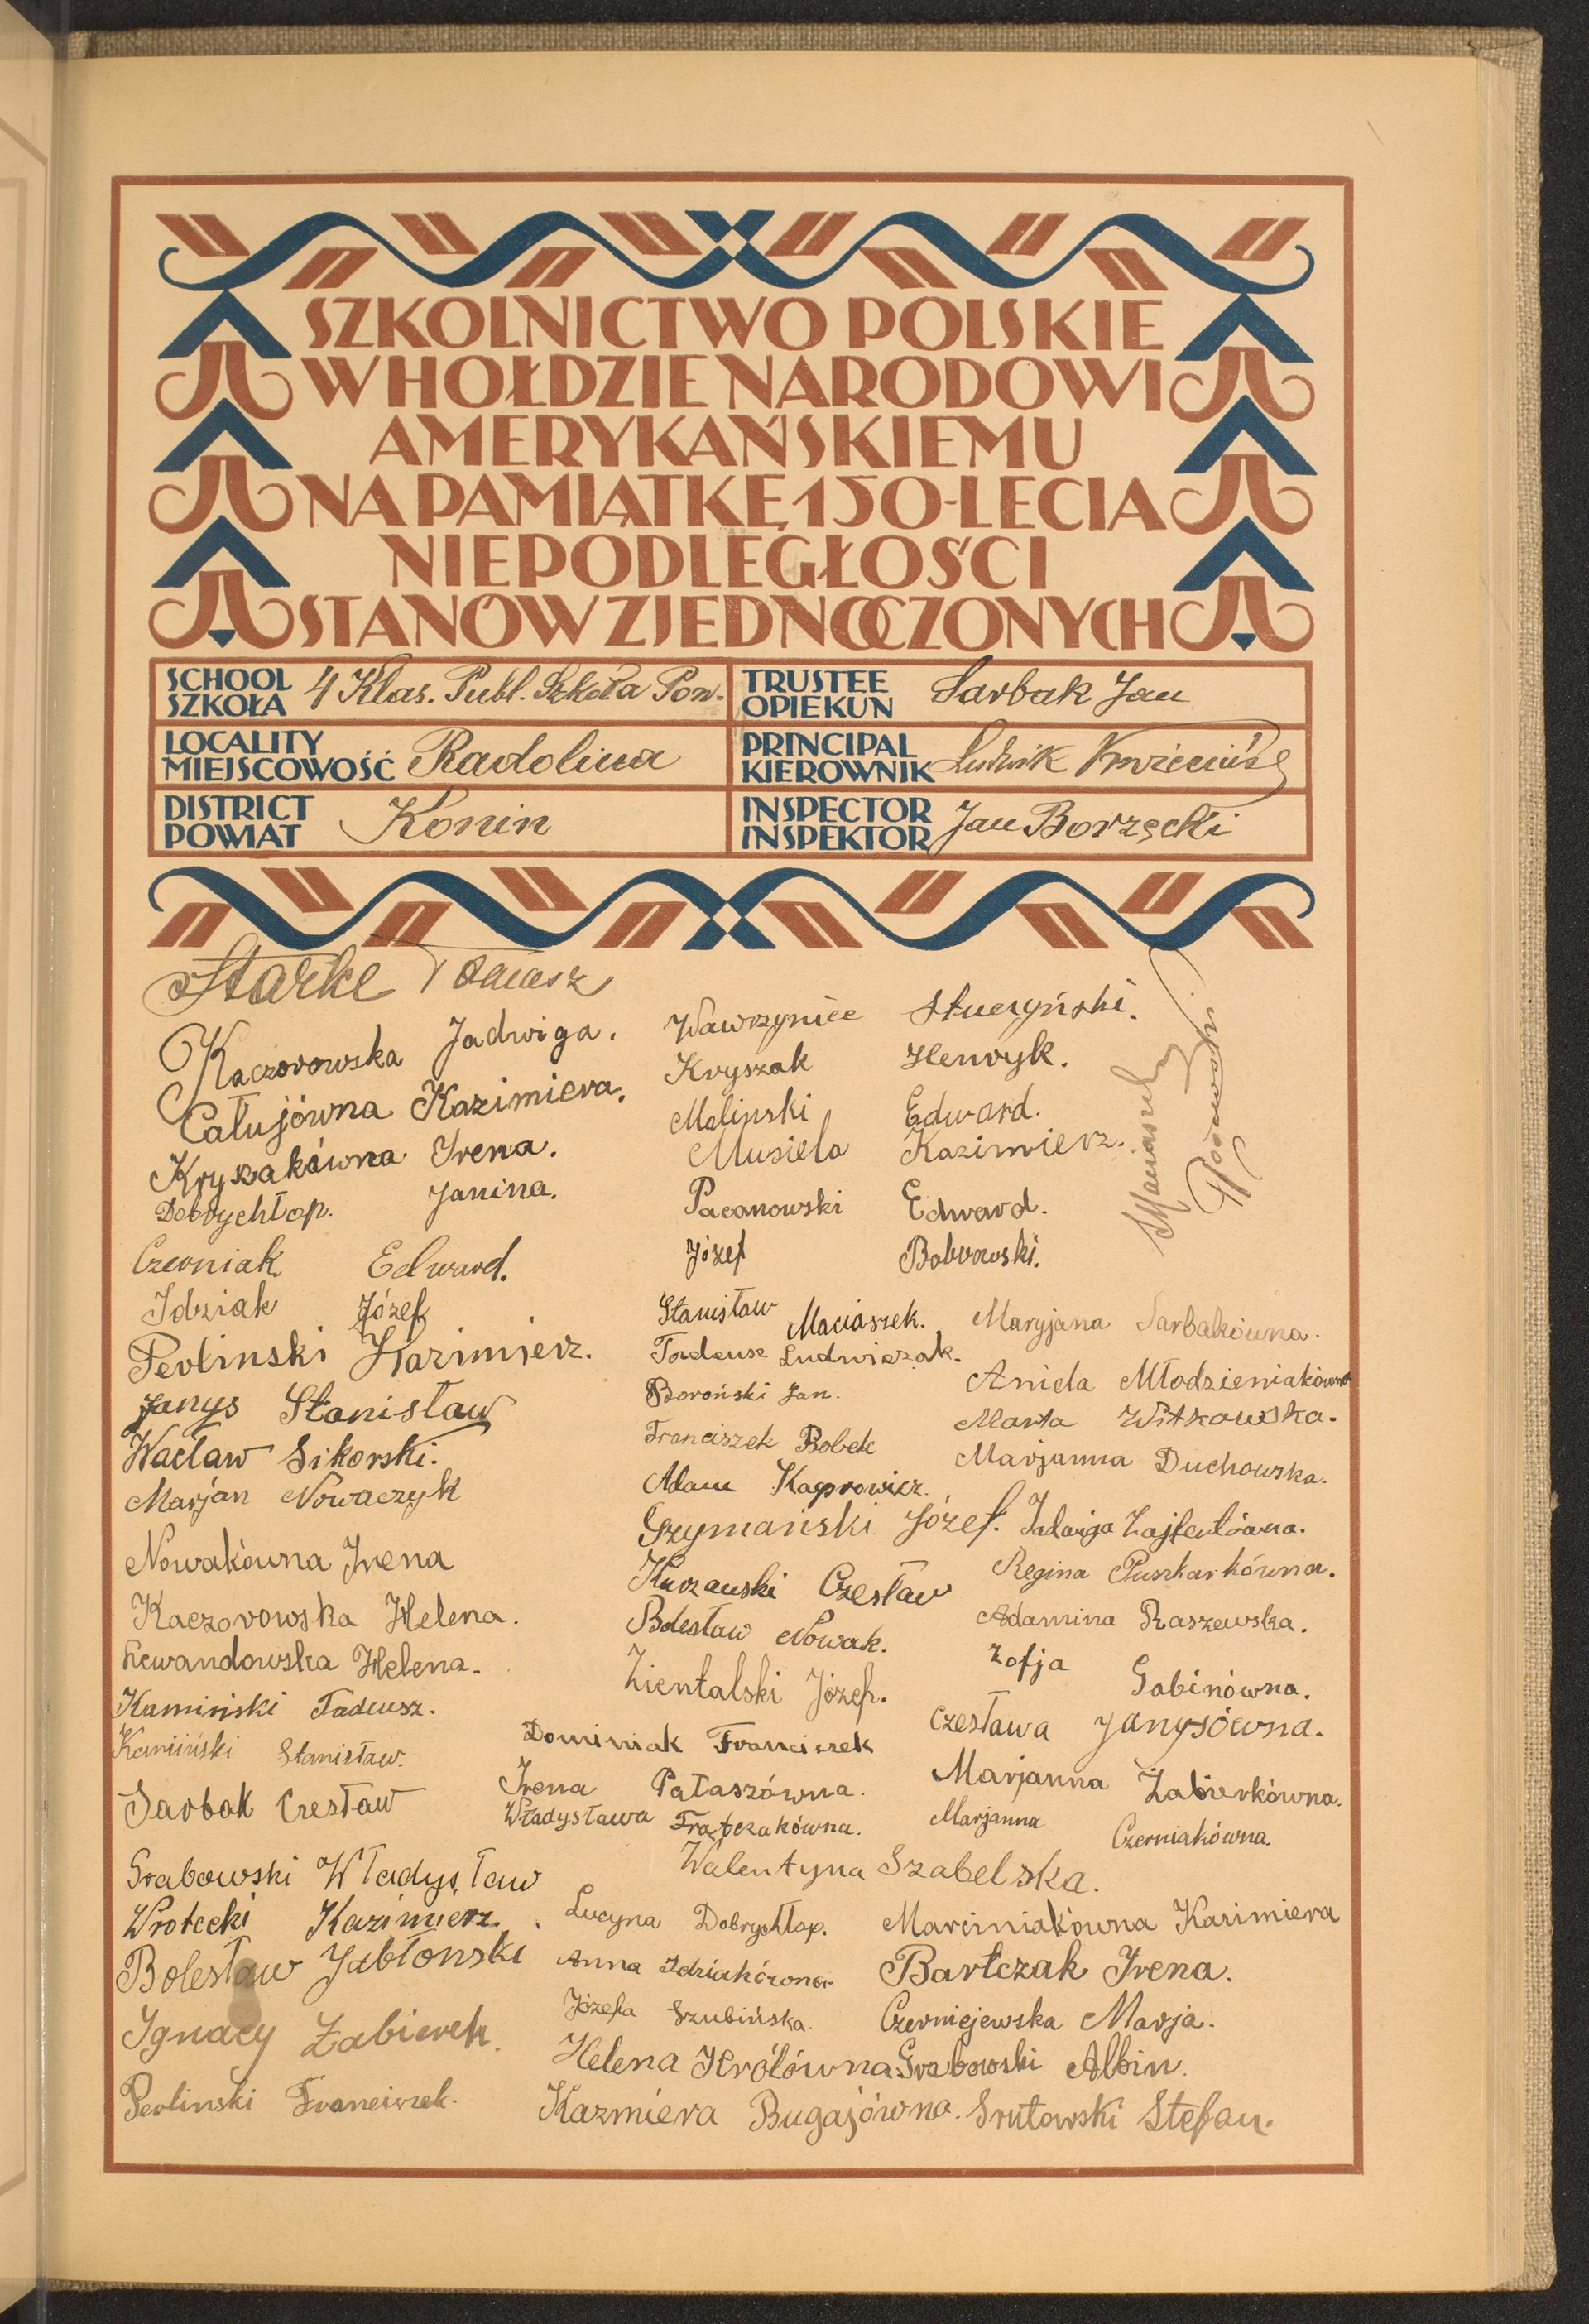 SZKOLNICTWO POLSKIE
W HOŁDZIE NARODOWI
AMERYKAŃSKIEMU
NA PAMIĄTKĘ 150-LECIA
NIEPODLEGŁOŚCI
STANÓW ZJEDNOCZONYCH
SCHOOL
SZKOŁA
4 Klas. Publ. Szkoła Pow.
TRUSTEE
OPIEKUN
Sarbak Jan
LOCALITY
MIEJSCOWOŚĆ
Radolina
PRINCIPAL
KIEROWNIK
Ludwik
DISTRICT
POWIAT
Konin
INSPECTOR
INSPEKTOR
Jan Borzęcki
Starke Tomasz
Kaczorowska Jadwiga.
Całujówna Kazimiera.
Kryszakówna Irena.
Dobrychłop. Janina.
Czerniak Edward.
Idziak Józef
Perlinski Kazimierz.
Janys Stanisław
Wacław Sikorski.
Marjan Nowaczyk
Nowakówna Irena
Kaczorowska Helena.
Lewandowska Helena.
Kamiński Tadeusz.
Kamiński Stanisław.
Sarbak Czesław
Grabowski Władysław
Wrotecki Kazimierz.
Bolesław Jabłonski
Ignacy Żabierek.
Perlinski Franciszek.
Wawrzyniec Stuczyński.
Kryszak Henryk.
Malinski Edward.
Musiela Kazimierz.
Pacanowski Edward.
Józef Bobrowski.
Stanisław Maciaszek.
Tadeusz Ludwiczak.
Boroński Jan.
Franciszek Bobek
Adam Kaprowicz.
Szymański Józef.
Kurzawski Czesław
Bolesław Nowak.
Zientalski Józef.
Dominiak Franciszek
Irena Pałaszówna.
Władysława Frątczakówna.
Walentyna Szabelska.
Lucyna Dobrychłop.
Anna Idziakówna
Józefa Szubińska.
Helena Królówna
Kazmiera Bugajówna.
Maryjana Sarbakówna.
Aniela Młodzieniakówna
Marta Witkowska.
Marjanna Duchowska.
Jadwiga Zajfertówna.
Regina Puszkarkówna.
Adamina Raszewska.
Zofja Gabinówna.
Czesława Janysówna.
Marjanna Żabierkówna.
Marjanna Czerniakówna.
Marciniakówna Kazimiera
Bartczak Irena.
Czerniejewska Marja.
Grabowski Albin.
Srutowski Stefan.